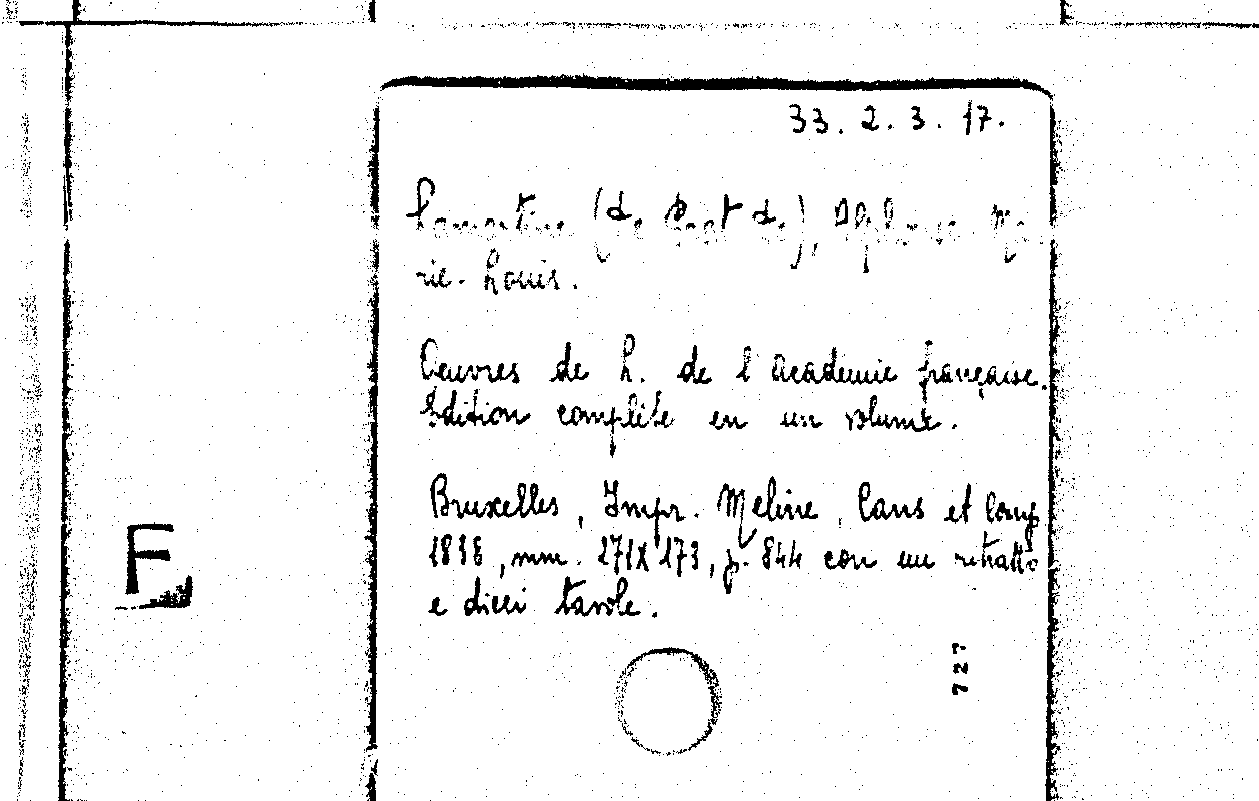 33. 2. 3. 17.
Lamartine (de Prat de), Alphonse Ma-
rie-Louis.
Œuvres de L. de l'academie française.
Edition complète en un volume.
Bruxelles, Impr. Meline, Cans et Comp
mm. 271X173, p. 844 con un ritratto
e dieci tavole.
F
727